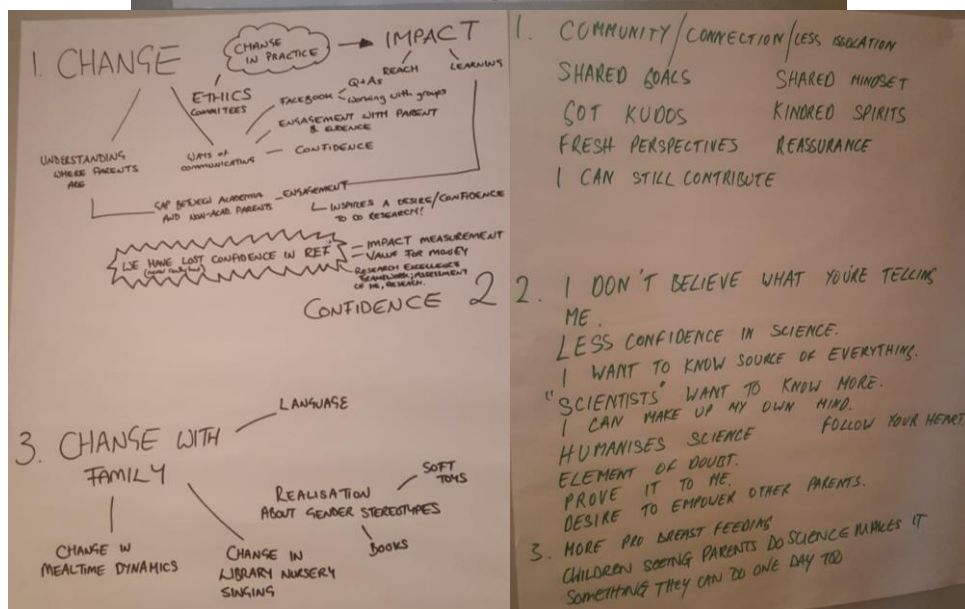 1. CHANGE
CHANGE
IN PRACTICE
IMPACT
REACH
LEARNING
ETHICS
COMMITTEES
FACEBOOK
Q+As
Working with groups
ENGAGEMENT WITH PARENT
& EVIDENCE
CONFIDENCE
WAYS OF
COMMUNICATING
UNDERSTANDING
WHERE PARENTS
ARE
GAP BETWEEN ACADEMIA
AND NON-ACAD. PARENTS
ENGAGEMENT
INSPIRES A DESIRE/CONFIDENCE
TO DO RESEARCH!
WE HAVE LOST CONFIDENCE IN REF
IMPACT MEASUREMENT
VALUE FOR MONEY
RESEARCH EXCELLENCE
FRAMEWORK; ASSESSMENT
OF RESEARCH.
CONFIDENCE 2
3. CHANGE WITH
FAMILY
LANGUAGE
REALISATION
ABOUT GENDER STEREOTYPES
SOFT
TOYS
BOOKS
CHANGE IN
MEALTIME DYNAMICS
CHANGE IN
LIBRARY NURSERY
SINGING
1. COMMUNITY/CONNECTION/LESS ISSOLATION
SHARED GOALS SHARED MINDSET
GOT KUDOS KINDRED SPIRITS
FRESH PERSPECTIVES REASSURANCE
I CAN STILL CONTRIBUTE
2. I DON'T BELIEVE WHAT YOU'RE TELLING
ME.
LESS CONFIDENCE IN SCIENCE.
I WANT TO KNOW SOURCE OF EVERYTHING.
"SCIENTISTS" WANT TO KNOW MORE.
I CAN MAKE UP MY OWN MIND.
HUMANISES SCIENCE FOLLOW YOUR HEART
ELEMENT OF DOUBT.
PROVE IT TO ME.
DESIRE TO EMPOWER OTHER PARENTS.
3. MORE PRO BREAST FEEDING
CHILDREN SEEING PARENTS DO SCIENCE MAKES IT
SOMETHING THEY CAN DO ONE DAY TOO